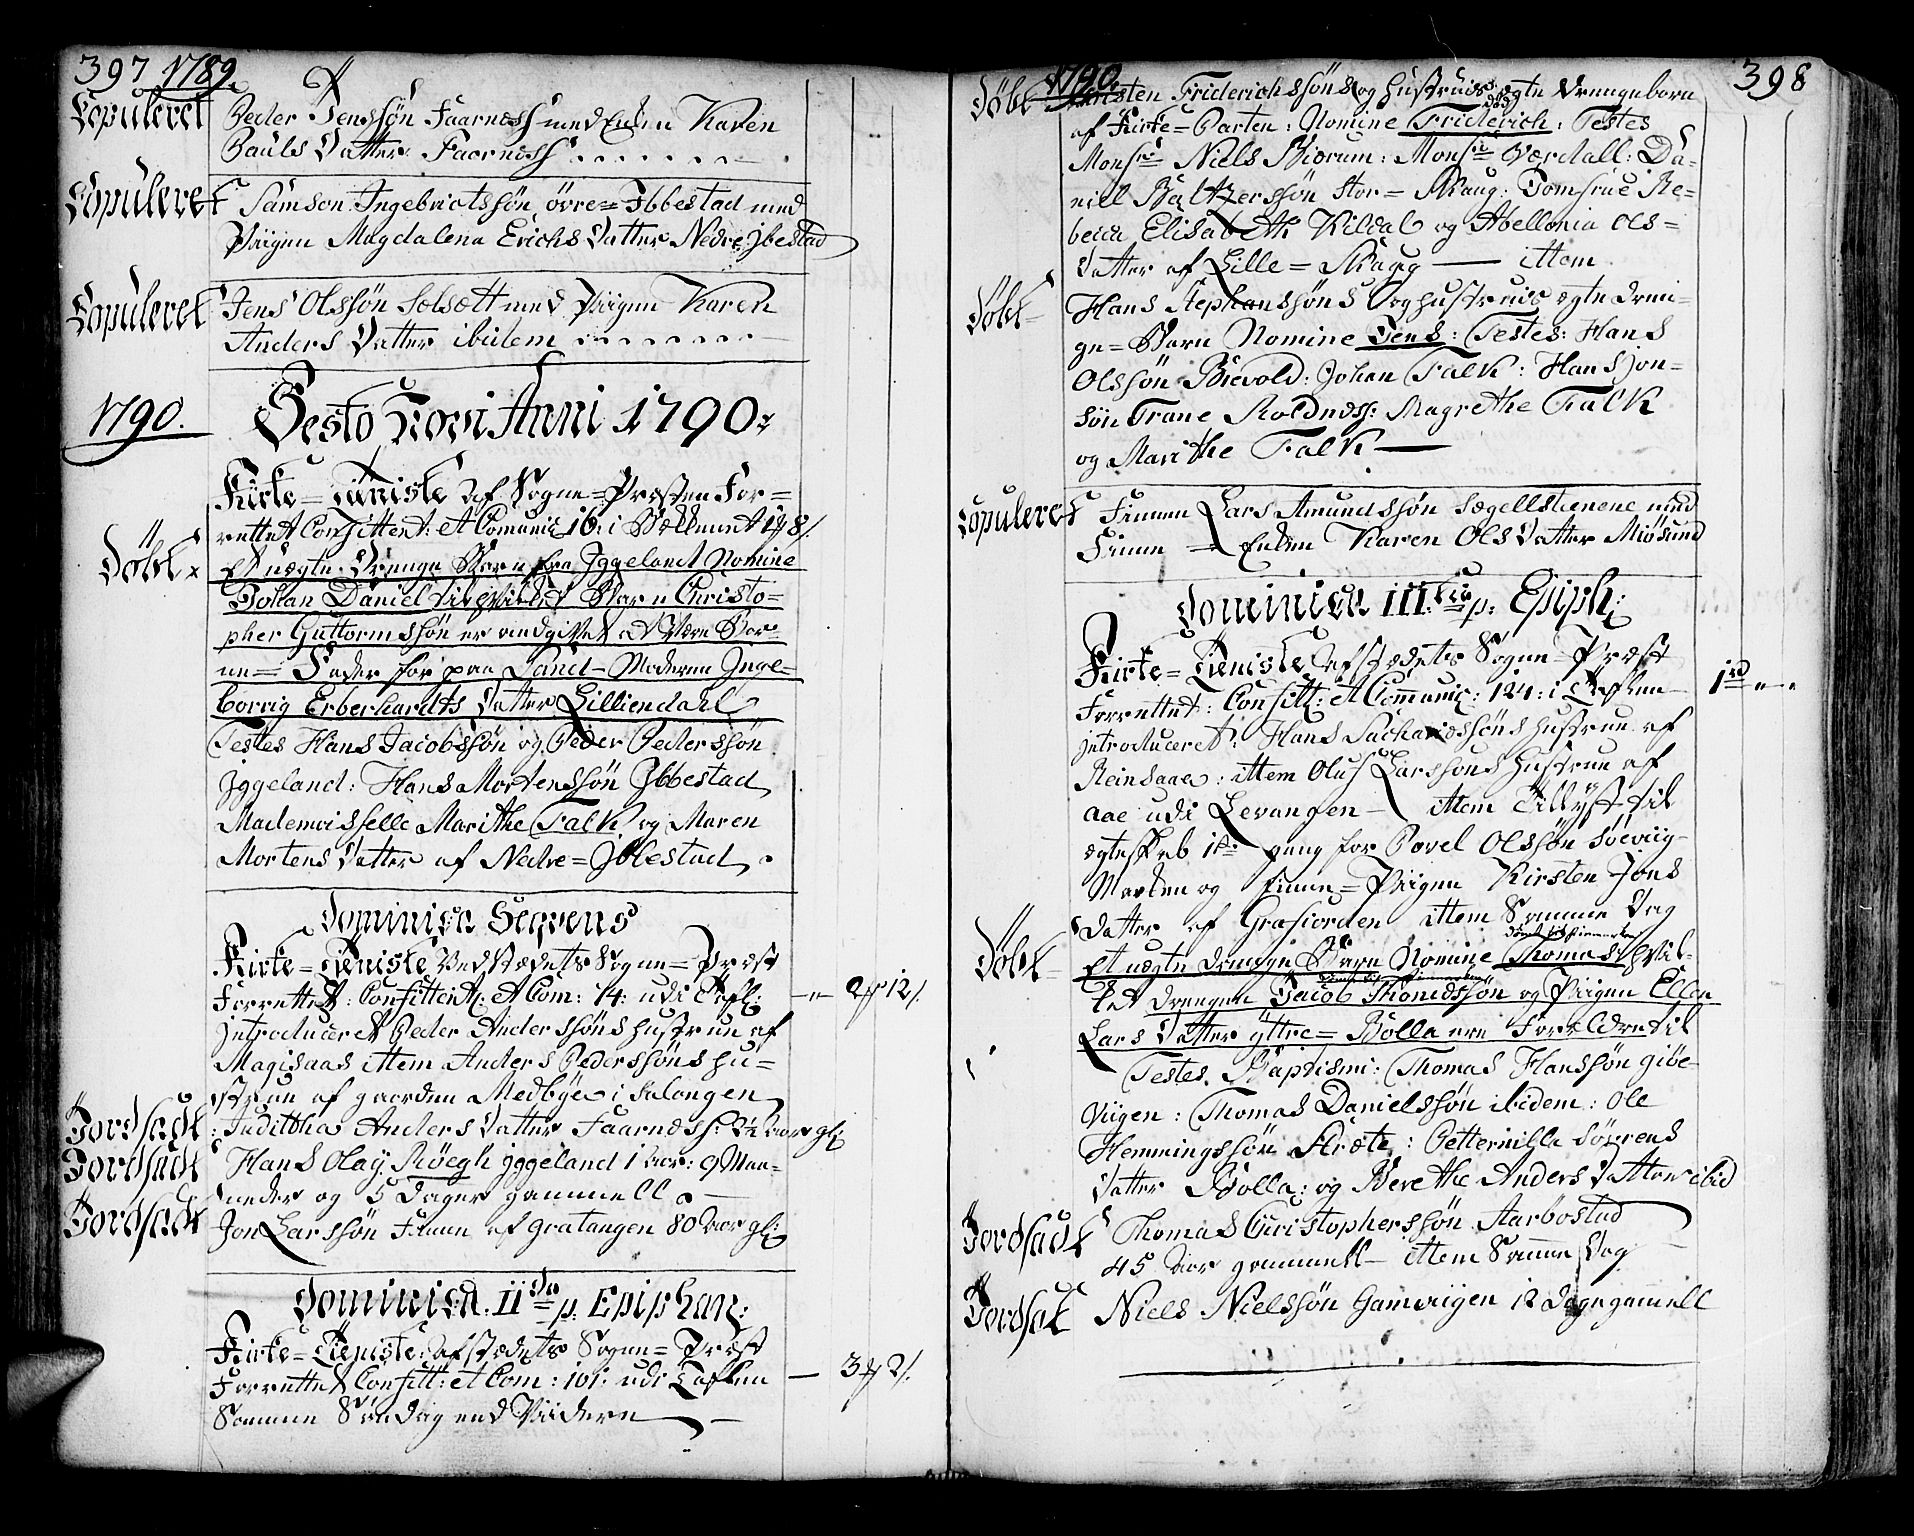 397 1789.
Copuleret Peder Jenssøn Faarness med Enken Karen
Pauls Datter Faarness
Copuleret Samson Ingebrictssøn övre=Ibbestad med
Piigen Magdalena Erichs Datter Nedre=Jbestad
Copuleret Jens Olssøn Sølsætt med Piigen Karen
Anders Datter ibidem
1790.
Festo Novi Anni 1790.
Kirke=Tieniste af Sogne=Præsten For=
rettet Confittent: et Comunic: 16: i Bækkenet
Döbt Et uægte Drenge Barn fra Jggeland Nomine
Johan Daniel til hvilket Barn Christo=
pher Guttormssøn er andgivet at være Bar=
ne=Fader for paa Land=Moderen Inge=
borrig Erberhardts Datter Lilliendahl
Testes Hans Jacobssøn og Peder Pederssøn
Jggeland: Hans Mortenssøn Jbbestad
Mademoisselle Marithe Falk og Maren
Mortens Datter af Nedre=Jbbestad
Dominica Seqvens
Kirke=Tieniste ved Stædets Sogne=Præst
Forrettet: Confittent: et Com: 14: udi Tafl: 2 12
introduceret Peder Anderssøns Hustrue af
Magisaas ittem Anders Pederssøns Hu=
strue af gaarden Medbye i Salangen
Jordfæst Judittha Anders Datter Faarness:
Jordfæst Hans Olay Røegh jggeland 1 Aar: 9 Maa=
neder og 5 Dager gammell
Jordfæst Jon Larssøn Finn af gratangen 80 Aar gl:
Dominica IIda p: Epiphan:
Kirke=Tieniste: af Stædets Sogne=Præst
Forrettet Confitt: et Com: 101: udi Taflen 3 2
Samme Søndag end Viidere
1790. 398
Döbt Christen Friderichssøns og Hustrues ægte Drengebarn
af Kirke=Parten: Nomine Friderich: Testes
død
Monsr Niels Biærum: Monsr Værdall: Da=
niell Baltzerssøn Stor=Skaug: Jomfrue Re=
becca Elisabeth Kildal og Abellonia Ols=
Datter af Lille=Skaug ittem
Döbt Hans Stephanssøns og Hustrues ægte Dren=
ge=Barn Nomine Jens: Testes: Hans
Olssøn Brevold: Johan Falk: Hans Jon=
søn Trane Roldness: Magrethe Falk
og Marithe Falk
Copuleret Finnen Lars Amundssøn Sægellsteenene med
Finne=Enken Karen Ols Datter Miösund
Dominica III:tia p: Epiph:
Kirke=Tieniste af Stædets Sogne=Præst
Forrettet: Confitt: et Communic: 124: i Taflen 1rd
introduceret: Hans Sachariessøns Hustrue af
Reinsaae: ittem Oluf Larssøns Hustrue af
aae udi Levangen ittem Tillyst til
ægteskab 1te gang for Povel Olssøn Söeviig=
Marken og Finne=Piigen Kirsten Jons
Datter af Grafiorden ittem Samme Dag
Döbt Et uægte Drenge Barn Nomine Thomas hvil=
ket Drengen Jacob Thomessøn og Piigen Ellen
Lars Datter yttre=Rolla ere Forældre til
Testes Baptismi: Thomas Hanssøn giöe=
Viigen: Thomas Danielssøn ibidem: Ole
Hemmingssøn Kræte: Petternilla Sörens
Datter Rolla: og Berethe Anders Datter ibid
Jordfæst Thomas Christopherssøn Aarbostad
45 Aar gammell ittem Samme Dag
Jordfæst Niels Nielssøn Gamviigen 12 Dage gamell